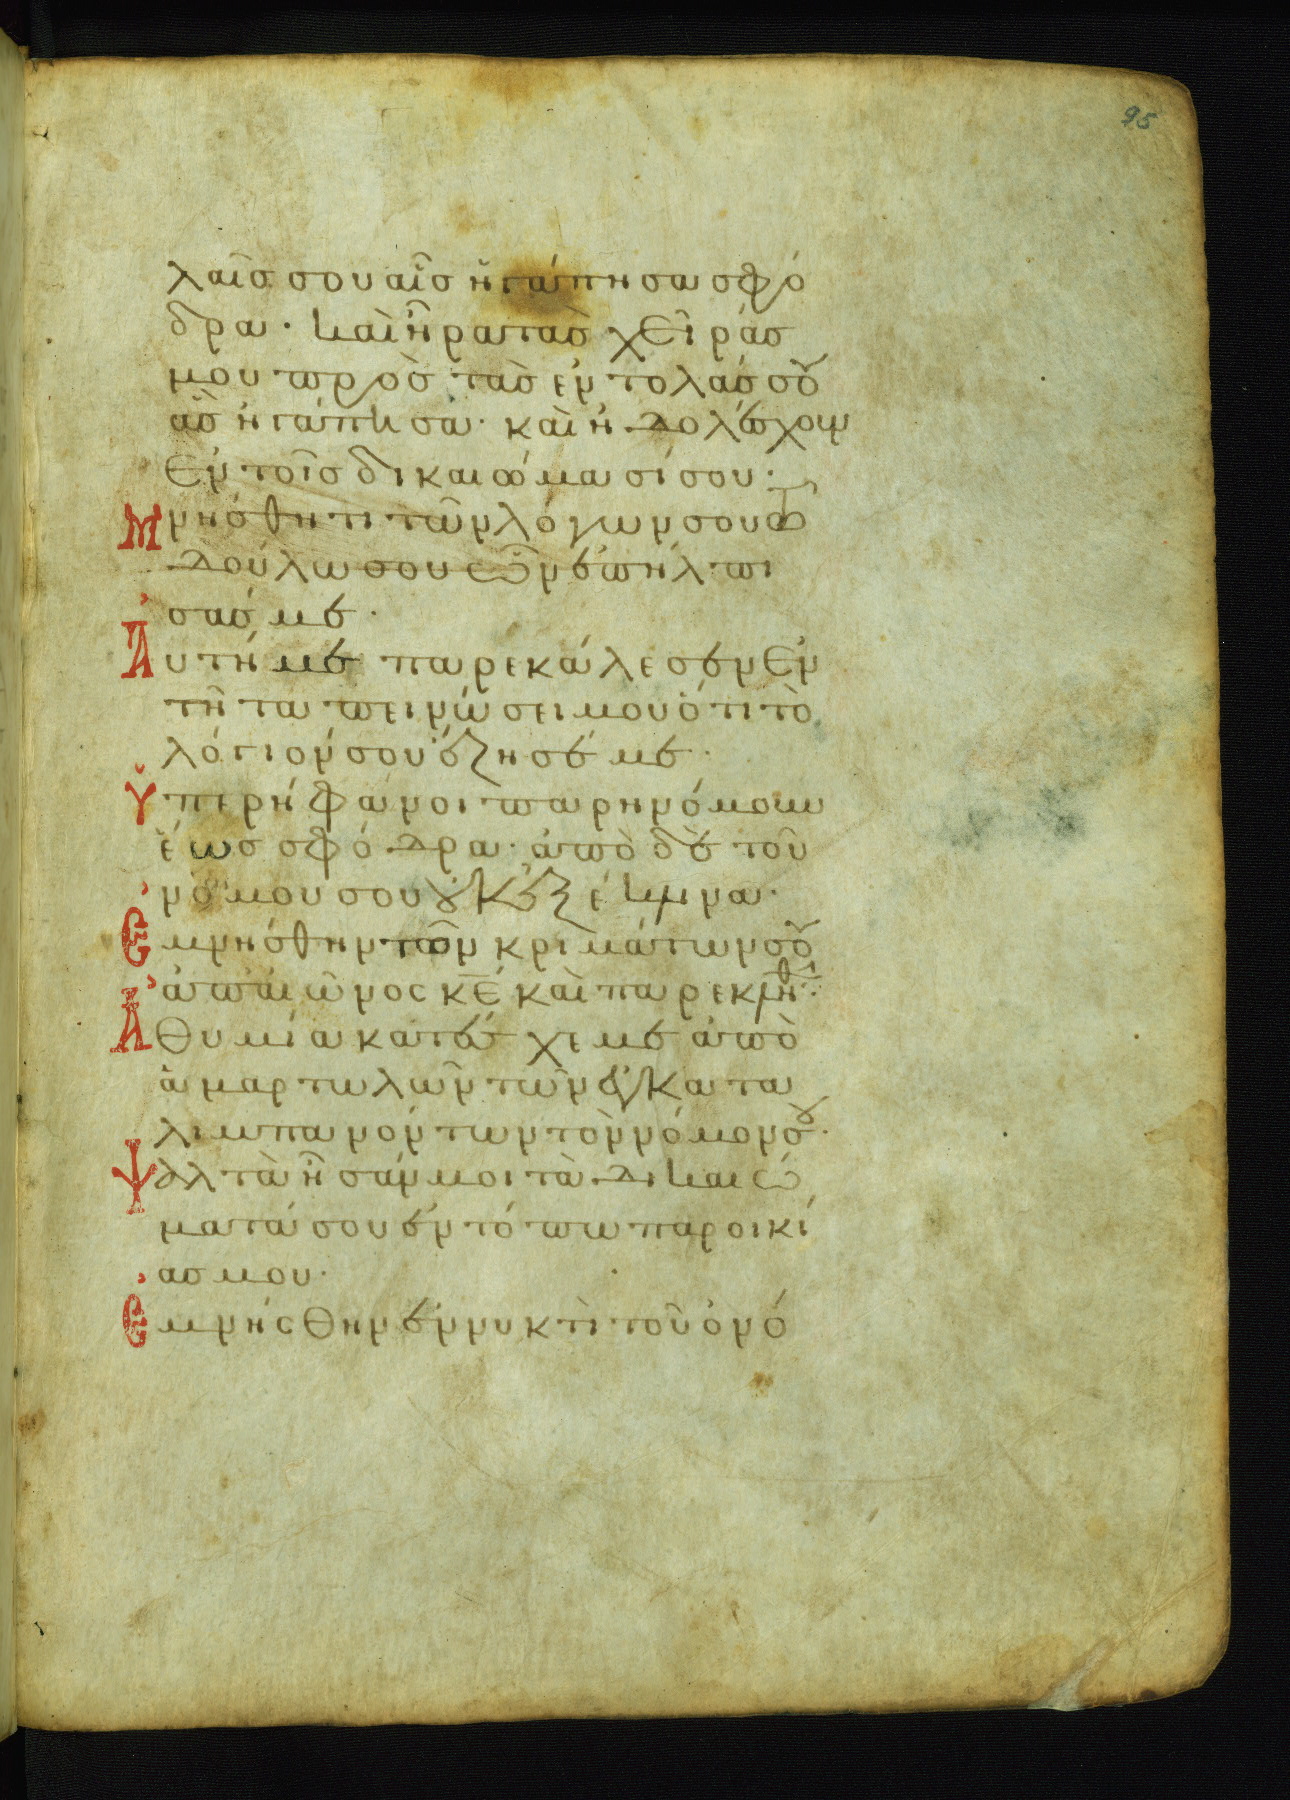 95
λαῖς σου αἷς ἠγάπησα σφό
δρα· καὶ ἦρα τὰς χεῖράς
μου πρὸς τὰς ἐντολάς σου
ἃς ἠγάπησα· καὶ ἠδολέσχουν
ἐν τοῖς δικαιώμασί σου·
Μνήσθητι τῶν λόγων σου τῶ
δούλω σου ὧν ἐπήλπι
σάς με·
Αὐτή με παρεκάλεσεν ἐν
τῆ ταπεινώσει μου ὅτι τὸ
λόγιόν σου ἔζησέ με·
Ὑπερήφανοι παρηνόμουν
ἕως σφόδρα· ἀπὸ δὲ τοῦ
νόμου σου οὐκ ἐξέκλινα·
Ἐμνήσθην τῶν κριμάτων σου
ἀπ' αἰῶνος κε καὶ παρεκλήθ·
Ἀθυμία κατέσχε με ἀπὸ
ἁμαρτωλῶν τῶν ἐγκατα
λιμπανόντων τὸν νόμον σου·
Ψαλτὰ ἦσάν μοι τὰ δικαιώ
ματά σου ἐν τόπω παροικί
ας μου·
Ἐμνήσθην ἐν νυκτὶ τοῦ ὀνό